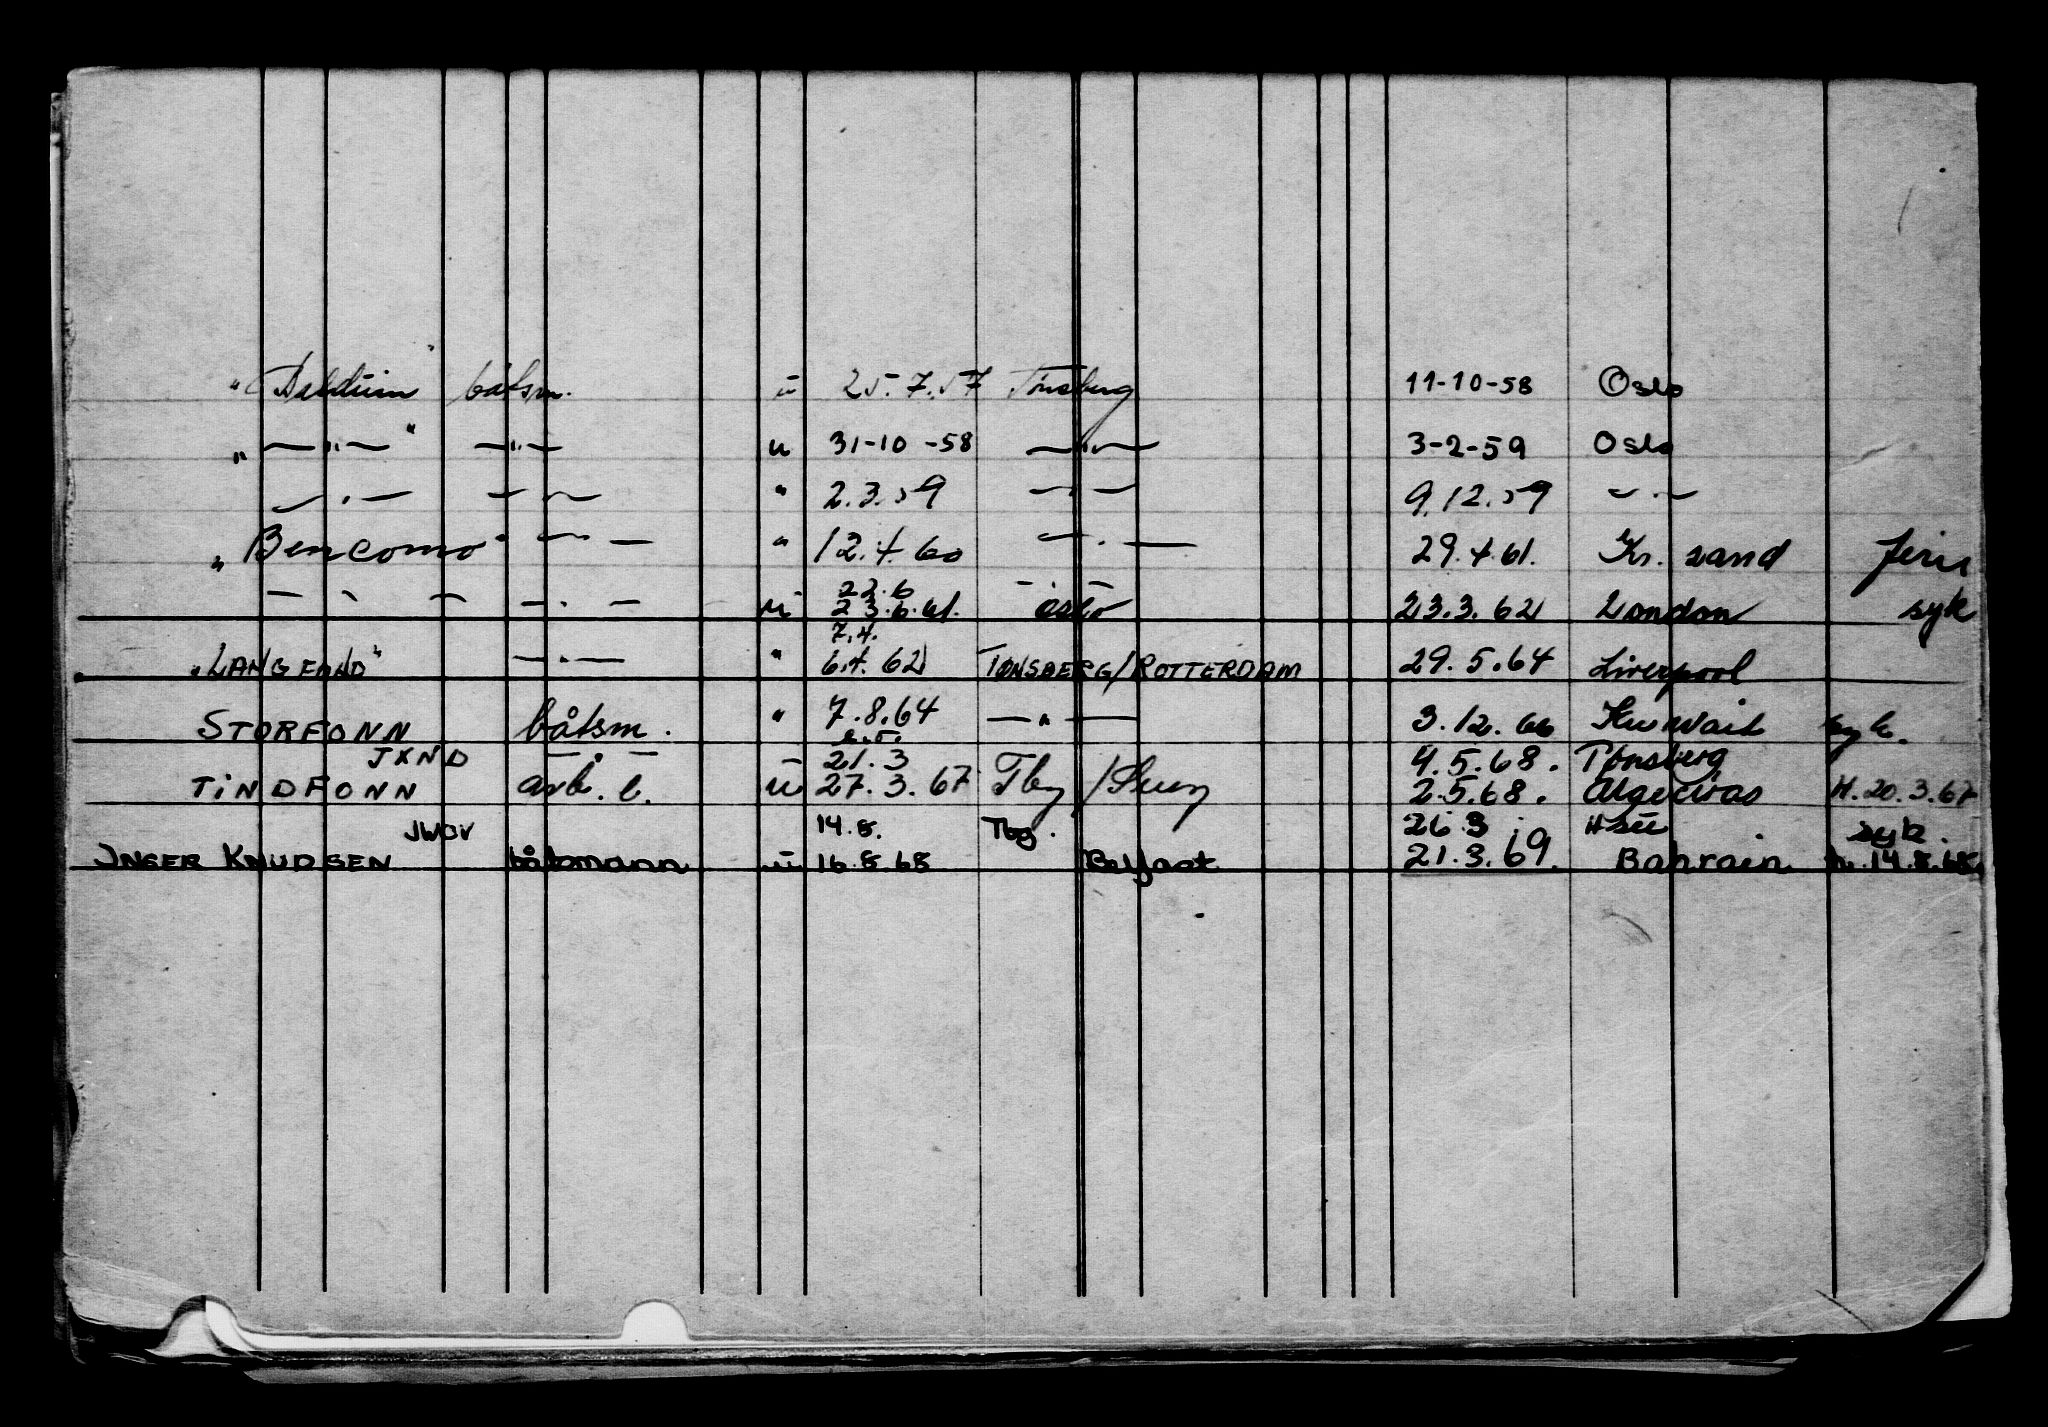 båtsm. u 25.7.57 Tønsberg 11-10-58 Oslo
" — " — " — " — u 31-10-58 — " — 3-2-59 Oslo
— . — — " — " 2.3.59 — " — 9.12.59 — . —
" Bencomo " — " — " 12.4.60 — . — 29.4.61. Kr. sand
22.6
— " — — . — u 23.6.61. Oslo 23.3.62 London syk
7.4.
"LANGFAND" — . — " 6.4.62 TØNSBERG/ROTTERDAM 29.5.64 Liverpool
STORFONN båtsm. " 7.8.64 — " — 3.12.66 Kuwait syk.
JXND — . — 21.3 4.5.68. Tønsberg
TINDFONN u 27.3.67 Tbg / 2.5.68. Algeciras H.20.3.67
JWOV 14.8. Tbg. 26.3 syk.
INGER KNUDSEN båtsmann u 16.8.68 Belfast 21.3.69. Bahrain h.14.8.68.